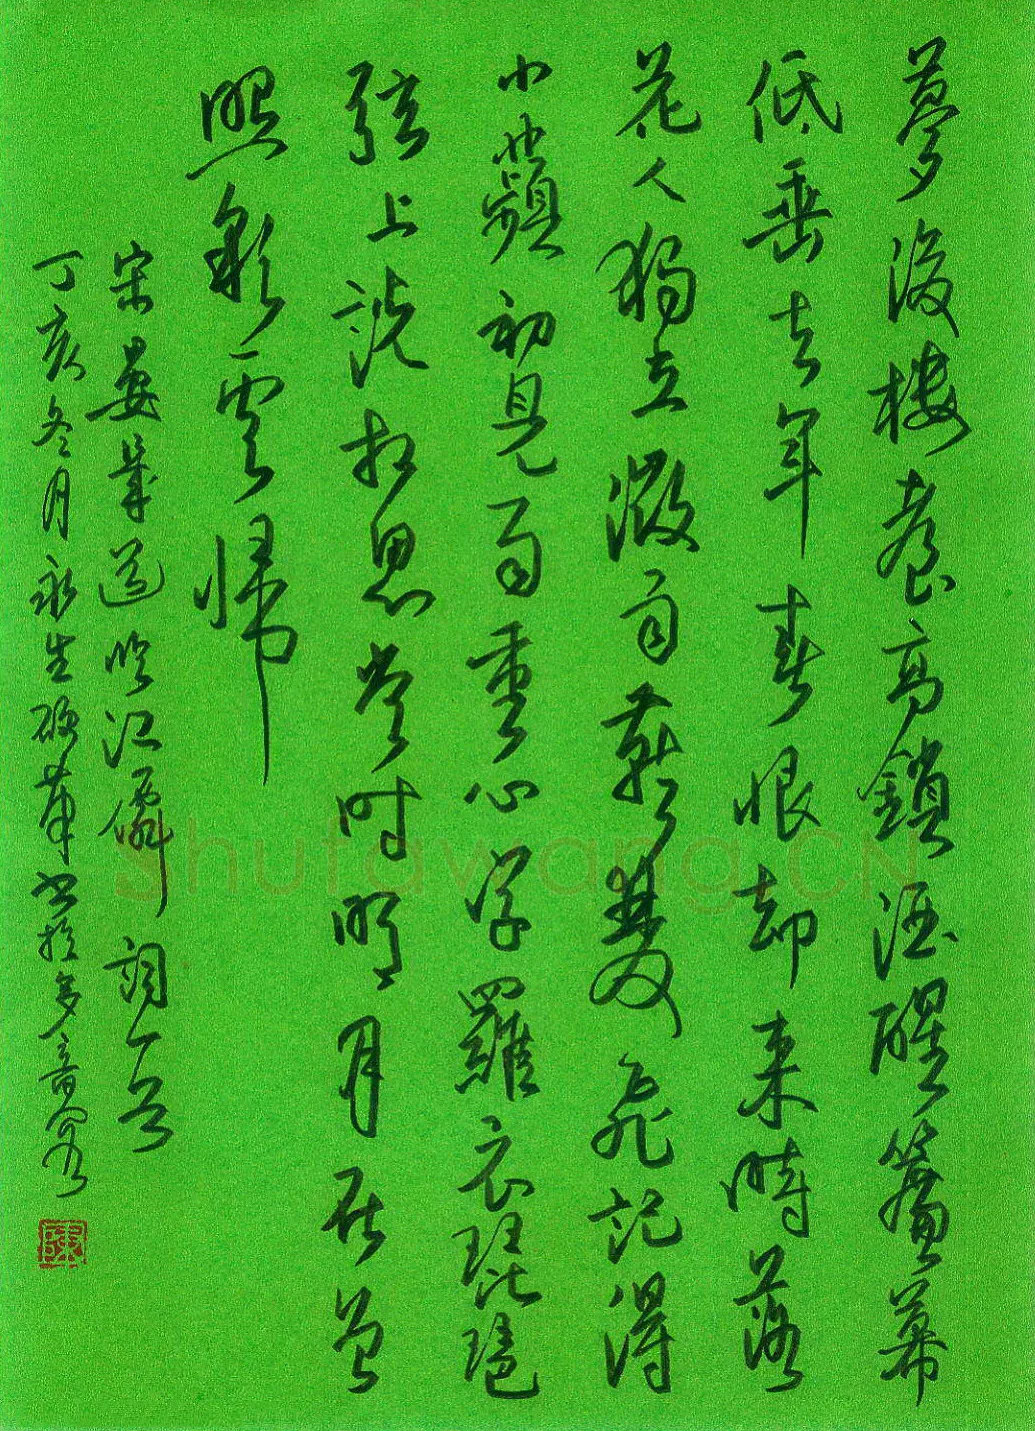 夢後樓臺高鎖酒醒簾幕
低垂去年春恨却来時落
花人獨立微雨燕雙飛記得
小蘋初見兩重心字羅衣琵琶
弦上説相思當時明月在曾
照彩雲歸
宋晏幾道臨江僊詞一首
丁亥冬月永生硬筆書於
Shufawang.CN